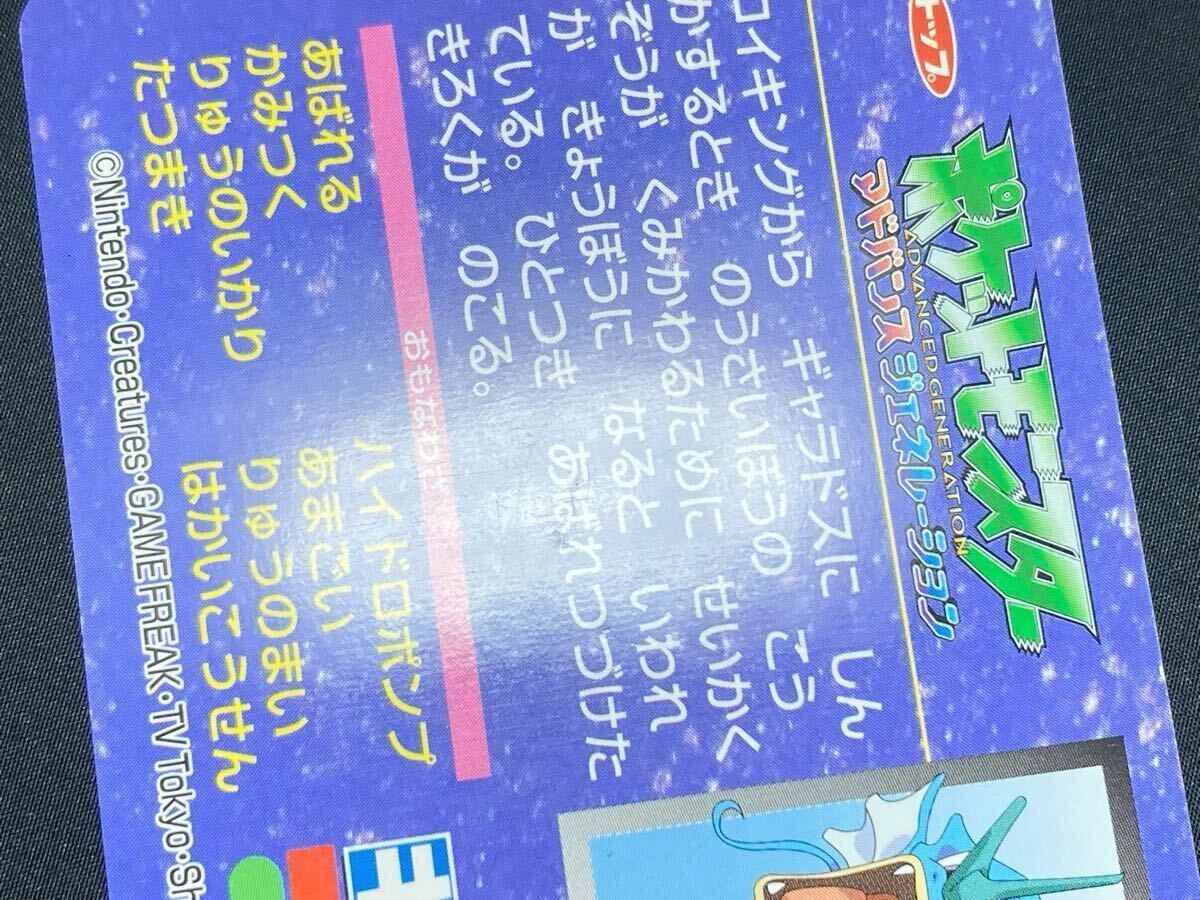 トップ。
ポケットモンスター
ADVANCED GENERATION
アドバンス ジェネレーション
コイキングから ギャラドスに しん
かするとき のうさいぼうの こう
ぞうが くみかわるために せいかく
が きょうぼうに なると いわれ
ている。 ひとつき あばれつづけた
きろくが のこる。
おもなわざ
ハイドロポンプ
あばれる あまごい
かみつく りゅうのまい
りゅうのいかり はかいこうせん
たつまき
©Nintendo・Creatures・GAME FREAK・TV Tokyo・Sh